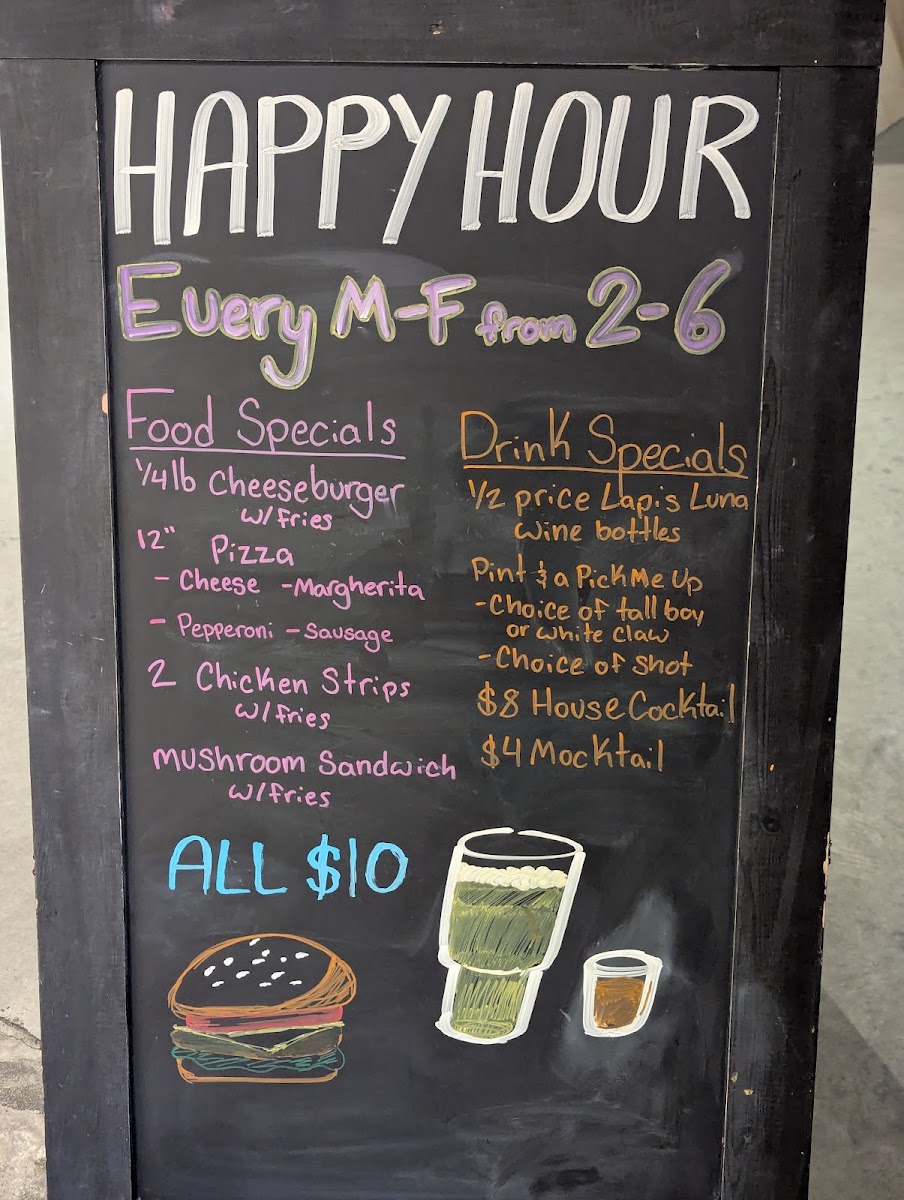 HAPPY HOUR
Every M-F from 2-6
Food Specials
1/4 lb Cheeseburger
w/fries
12" Pizza
- Cheese - Margherita
- Pepperoni - Sausage
2 Chicken Strips
w/fries
mushroom Sandwich
w/fries
ALL $10
Drink Specials
1/2 price Lapis Luna
wine bottles
Pint & a Pick Me Up
- Choice of tall boy
or white claw
- Choice of shot
$8 House Cocktail
$4 Mocktail